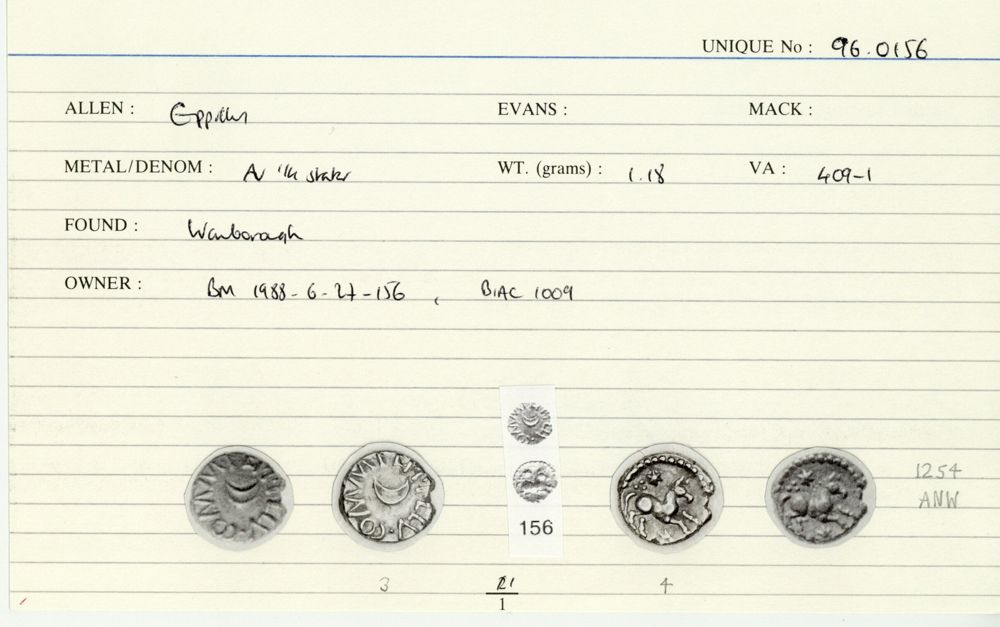 UNIQUE No : 96.0156
ALLEN : Eppillus EVANS : MACK :
METAL/DENOM : AV 1/4 stater WT. (grams) : 1.18 VA : 409-1
FOUND : Wanborough
OWNER : BM 1988-6-27-156, BIAC 1009
156
1254
ANW
3 4
1